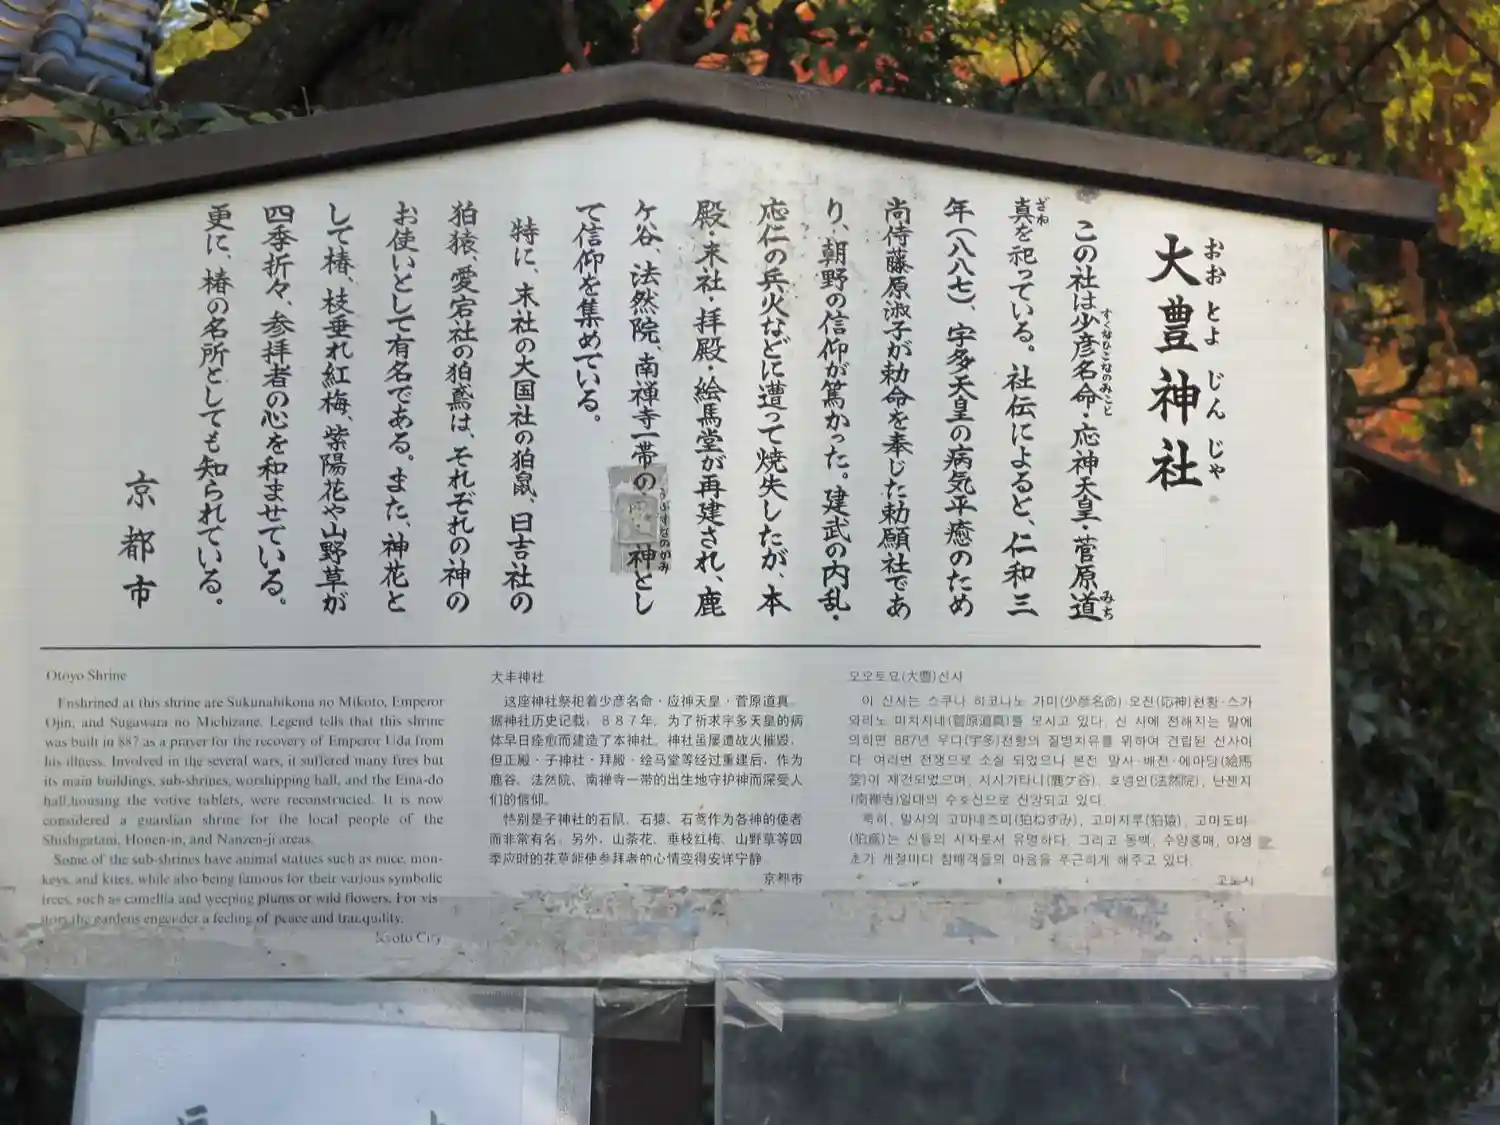 大豊神社
おおとよじんじゃ
この社は少彦名命・応神天皇・菅原道
すくなひこなのみこと
みち
真を祀っている。社伝によると、仁和三
ざね
年(八八七)、宇多天皇の病気平癒のため
尚侍藤原淑子が勅命を奉じた勅願社であ
り、朝野の信仰が篤かった。建武の内乱・
応仁の兵火などに遭って焼失したが、本
殿・末社・拝殿・絵馬堂が再建され、鹿
ケ谷、法然院、南禅寺一帯の 神とし
うぶすなのかみ
て信仰を集めている。
特に、末社の大国社の狛鼠、日吉社の
狛猿、愛宕社の狛鳶は、それぞれの神の
お使いとして有名である。また、神花と
して椿、枝垂れ紅梅、紫陽花や山野草が
四季折々、参拝者の心を和ませている。
更に、椿の名所としても知られている。
京都市
Otoyo Shrine
Enshrined at this shrine are Sukunahikona no Mikoto, Emperor
Ojin, and Sugawara no Michizane. Legend tells that this shrine
was built in 887 as a prayer for the recovery of Emperor Uda from
his illness. Involved in the several wars, it suffered many fires but
its main buildings, sub-shrines, worshipping hall, and the Ema-do
hall housing the votive tablets, were reconstructed. It is now
considered a guardian shrine for the local people of the
Shishigatani, Honen-in, and Nanzen-ji areas.
Some of the sub-shrines have animal statues such as mice, mon-
keys, and kites, while also being famous for their various symbolic
trees, such as camellia and weeping plums or wild flowers. For vis-
itors the gardens engender a feeling of peace and tranquility.
Kyoto City
大丰神社
这座神社祭祀着少彦名命・应神天皇・菅原道真。
据神社历史记载，８８７年，为了祈求宇多天皇的病
体早日痊愈而建造了本神社。神社虽屡遭战火摧毁，
但正殿・子神社・拜殿・绘马堂等经过重建后，作为
鹿谷、法然院、南禅寺一带的出生地守护神而深受人
们的信仰。
特别是子神社的石鼠、石猿、石鸢作为各神的使者
而非常有名。另外，山茶花、垂枝红梅、山野草等四
季应时的花草能使参拜者的心情变得安详宁静
京都市
오오토요(大豊)신사
이 신사는 스쿠나 히코나노 가미(少彦名命) 오진(応神)천황·스가
와라노 미치자네(菅原道真)를 모시고 있다. 신 사에 전해지는 말에
의하면 887년 우다(宇多)천황의 질병치유를 위하여 건립된 신사이
다 여러번 전쟁으로 소실 되었으나 본전 말사·배전·에마당(絵馬
堂)이 재건되었으며, 시시가타니(鹿ケ谷), 호넨인(法然院), 난젠지
(南禅寺)일대의 수호신으로 신앙되고 있다.
특히, 말사의 고마네즈미(狛ねずみ), 고마자루(狛猿), 고마도비
(狛鳶)는 신들의 사자로서 유명하다. 그리고 동백, 수양홍매, 야생
초가 계절마다 참배객들의 마음을 푸근하게 해주고 있다.
교토시